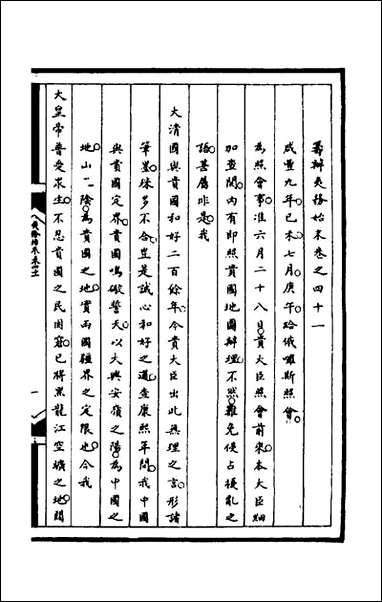 籌辦夷務始末卷之四十一
咸豐九年己未七月庚午給俄囉斯照會
為照會事准六月二十八日貴大臣照會前來本大臣細
加查閱內有即照貴國地圖辦理不然難免侵占擾亂之
語甚屬非是我
大清國與貴國和好二百餘年今貴大臣出此無理之言形諸
筆墨殊多不合豈是誠心和好之道查康熙年間我中國
與貴國定界貴國鳴礮誓天以大興安嶺之陽為中國之
地山陰為貴國之地實兩國疆界之定限也今我
大皇帝普愛眾生不忍貴國之民困窘已將黑龍江空曠之地閒